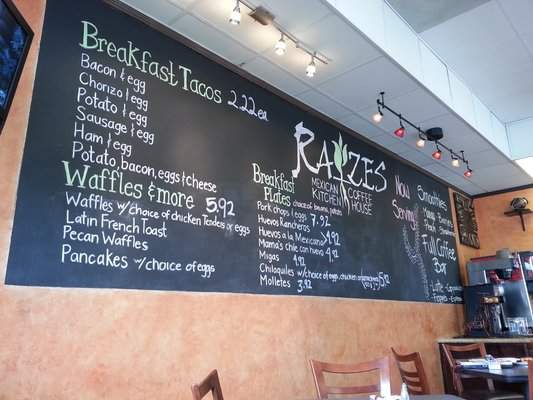 Breakfast Tacos 2.22 ea
Bacon & egg
Chorizo & egg
Potato & egg
Sausage & egg
Ham & egg
Potato, bacon, eggs & cheese
Waffles & more 5.92
Waffles w/choice of chicken Tenders or eggs
Latin French Toast
Pecan Waffles
Pancakes w/choice of eggs
RAIZES
MEXICAN
KITCHEN
COFFEE
HOUSE
Breakfast
Plates choice of beans, potato
Pork chops & eggs 7.92
Huevos Rancheros
Huevos a la Mexicana 4.92
Mama's chile con huevo 4.92
Migas 4.92
Chilaquiles w/choice of egg, chicken 5.92
Molletes 3.92
Now
Serving
Smoothies
Full Coffee
Bar